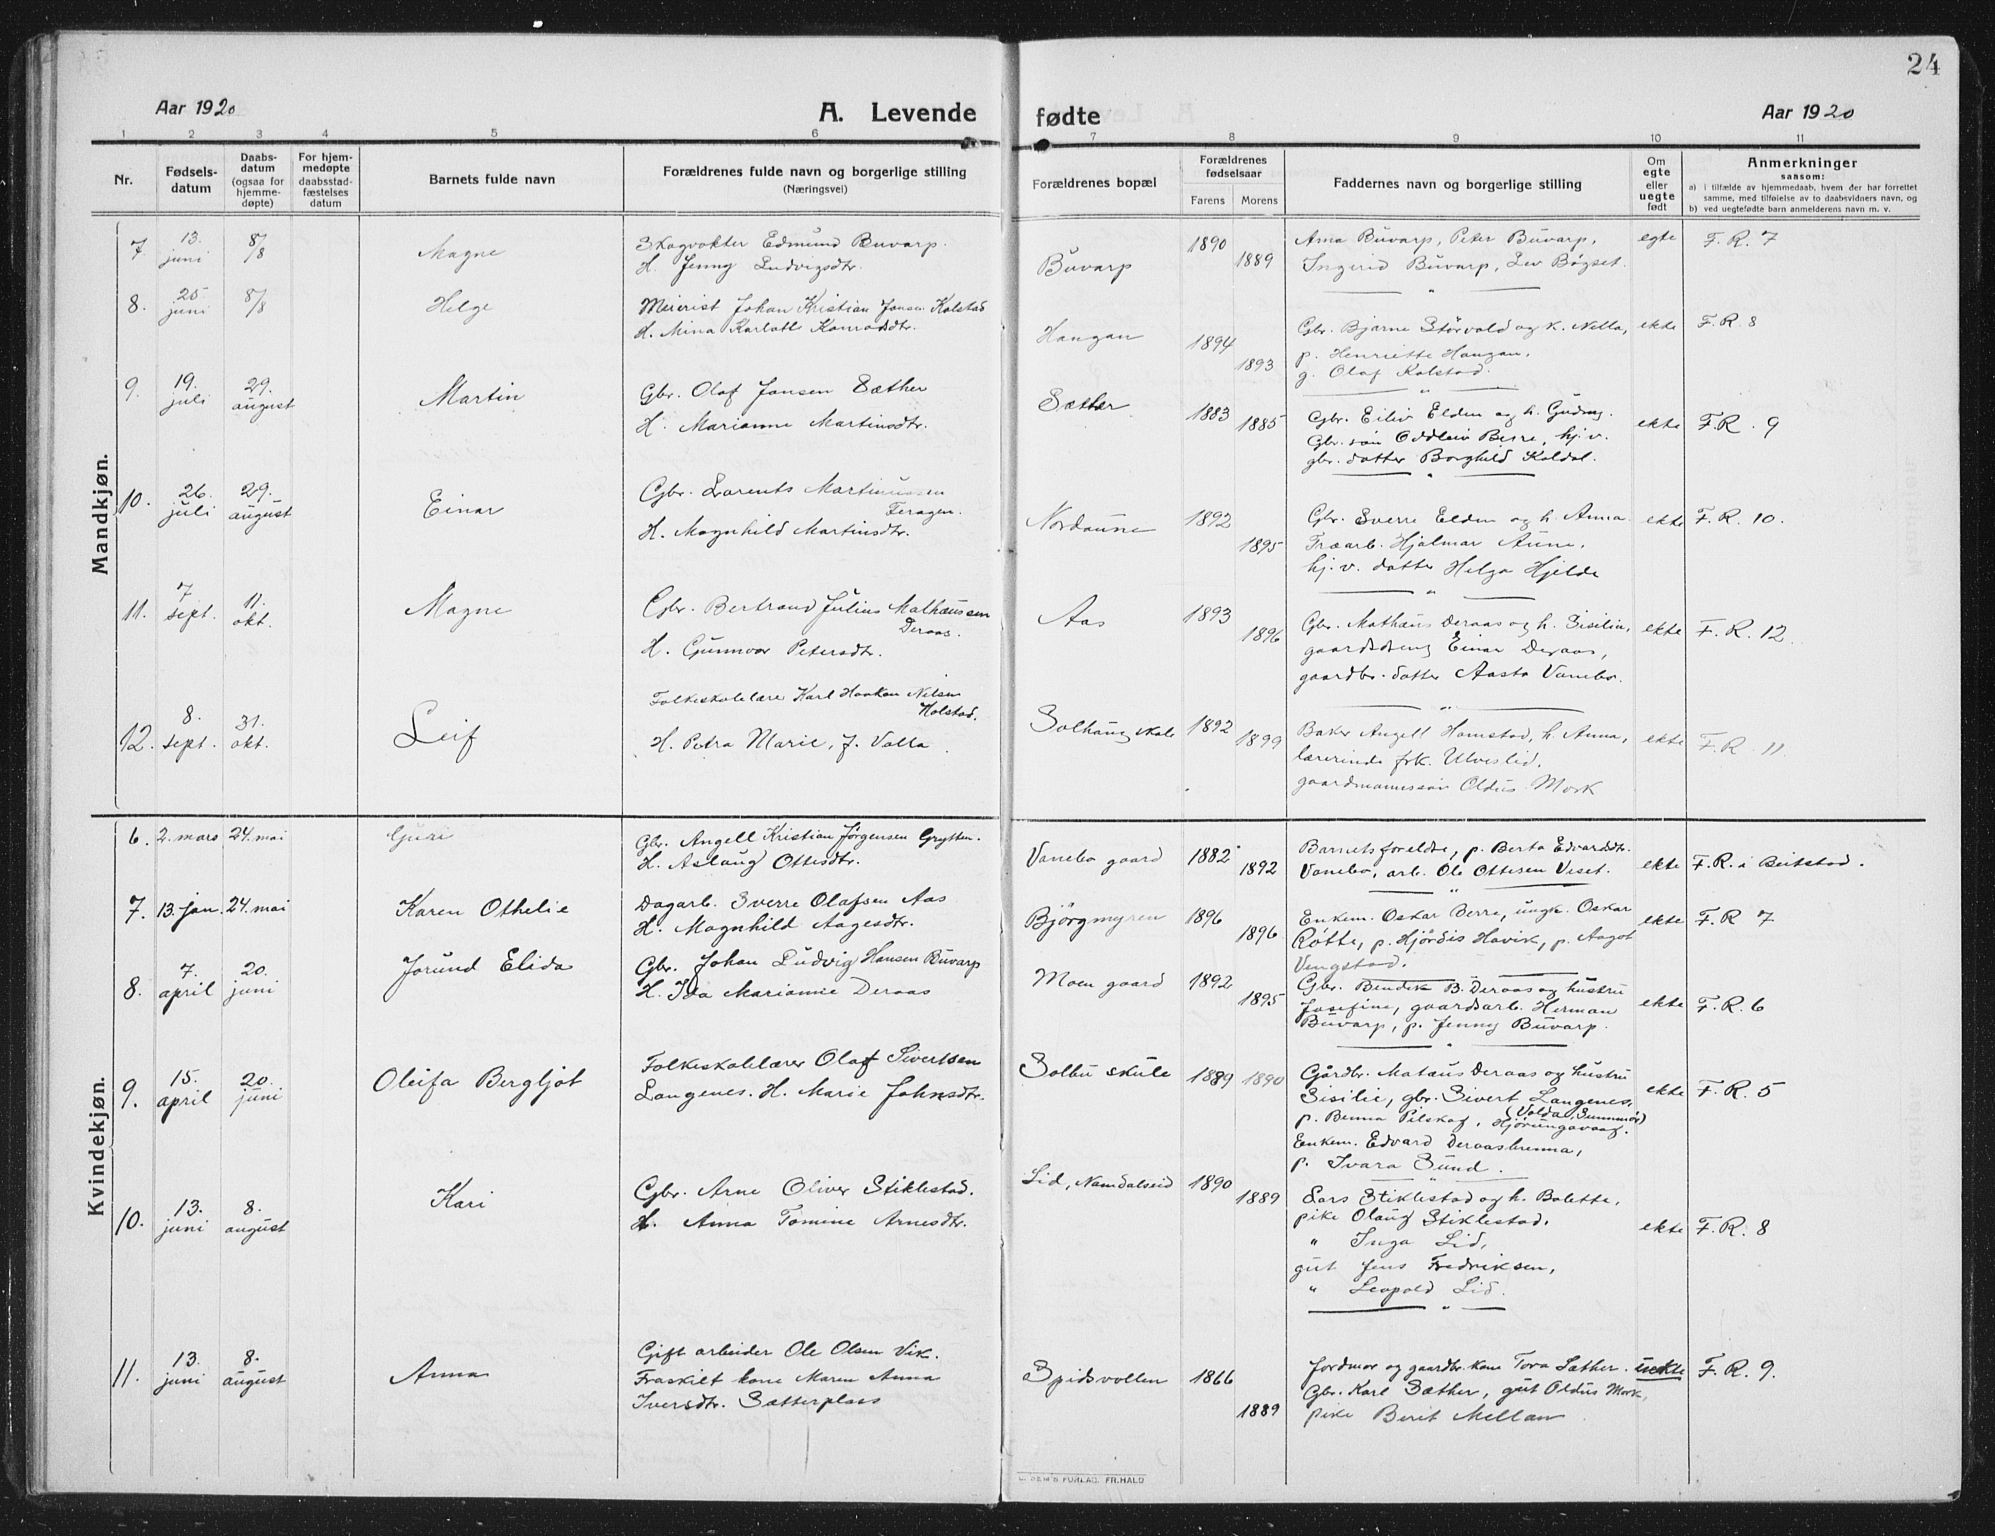 24
Aar 1920
A. Levende fødte
Aar 1920
1 2 3 4 5 6 7 8 9 10 11
Nr.
Fødsels-
datum
Daabs-
datum
(ogsaa for
hjemme-
døpte)
For hjem-
medøpte
daabsstad-
fæstelses
datum
Barnets fulde navn
Forældrenes fulde navn og borgerlige stilling
(Næringsvei)
Forældrenes bopæl
Forældrenes
fødselsaar
Farens Morens
Faddernes navn og borgerlige stilling
Om
egte
eller
uegte
født
Anmerkninger
saasom:
a) i tilfælde av hjemmedaab, hvem der har forrettet
samme, med tilføielse av to daabsvidners navn, og
b) ved uegtefødte barn anmelderens navn m. v.
Mandkjøn.
7 13. juni 8/8 Magne
Skogvokter Edmund Buvarp.
H. Jenny Ludvigsdtr.
Buvarp 1890 1889
Arna Buvarp, Peter Buvarp,
Ingerid Buvarp, Lev Bøgset.
egte F. R. 7
8. 25 juni 8/8 Helge
Meierist Johan Kristian Jansen Kolstad
H. Mina Karlotte Konradsdtr.
Haugan 1894 1893
Gbr. Bjarne Størvold og k. Nella,
p. Henriette Haugan,
g. Olaf Kolstad.
ekte F. R. 8
9. 19. juli 29. august Martin
Gbr. Olaf Jansen Sæther
H. Marianne Martinsdtr.
Sæther 1883 1885
Gbr. Eiliv Elden og h. Gudny.
Gbr. søn Oddleiv Berre, hj. v.
gbr. datter Borghild Koldal.
ekte F. R. 9
10. 26. juli 29. august Einar
Gbr. Lorents Martinussen
Feragen.
H. Magnhild Martinsdtr.
Nordaune 1892 1895
Gbr. Sverre Elden og h. Anna.
Træarb. Hjalmar Aune,
hj. v. datter Helga Hjelde
ekte F. R. 10.
11. 7 sept. 11. okt. Magne
Gbr. Bertrand Julius Mathæussen
Deraas.
H. Gunnvor Petersdtr.
Aas 1893 1896
Gbr. Mathæus Deraas og h. Siselia,
gaardsdreng Einar Deraas,
gaardbr. datter Aasta Vanebo.
ekte F. R. 12.
12. 8. sept. 31. okt. Leif
Folkeskolelære Karl Haakon Nilsen
Holstad.
H. Petra Marie, f. Valla
Solhaug skole 1892 1899
Baker Angell Hamstad, h. Anna,
lærerinde frk. Ulveslid,
gaardmannssøn Oldus Mork
ekte F. R. 11
Kvindekjøn.
6. 2. mars 24. mai Guri
Gbr. Angell Kristian Jørgensen Grytten.
H. Aslaug Ottesdtr.
Vanebo gaard 1882 1892
Barnets foreldre, p. Berta Edvardsdtr.
Vanebo, arb. Ole Ottersen Veset.
ekte F. R. i Beitstad.
7. 13. jan. 24. mai Karen Othelie
Dagarb. Sverre Olafsen Aas
H. Magnhild Aagesdtr.
Bjørgmyren 1896 1896
Enkem. Oskar Berre, ungk. Oskar
Røtte, p. Hjørdis Havik, p. Aagot
Vengstad.
ekte F. R 7
8. 7. april 20. juni Jorund Elida
Gbr. Johan Ludvig Hansen Buvarp
H. Ida Marianne Deraas
Moen gaard 1892 1895
Gbr. Bendik B. Deraas og hustru
Josefine, gaardsarb. Herman
Buvarp, p. Jenny Buvarp.
ekte F. R. 6
9. 15. april 20. juni Oleifa Bergljot
Folkeskolelærer Olaf Sivertsen
Langenes. H. Marie Johnsdtr.
Solbu skule 1889 1890
Gårdbr. Matæus Deraas og hustru
Sisilie, gbr. Sivert Langenes,
(Volda, Sunnmør)
p. Benna Pilskog, Hjørungavaag.
Enkem. Edvard Deraasbrenna,
p. Ivara Sund.
ekte F. R. 5
10. 13. juni 8. august Kari
Gbr. Arne Oliver Stiklestad.
H. Anna Tomine Arnesdtr.
Lid, Namdalseid 1890 1889
Lars Stiklestad og h. Bolette,
pike Olaug Stiklestad.
" Inga Lid,
gut Jens Fredriksen,
" Leopold Lid.
ekte F. R. 8
11. 13. juni 8. august Anna
Gift arbeider Ole Olsen Vik.
Fraskilt kone Maren Anna
Iversdtr. Sætterplass
Spidsvollen 1866 1889
Jordmor og gaardbr. kone Tova Sæther.
Gbr. Karl Sæther, gut Oldus Mork,
pike Berit Mellan
uekte F. R. 9.
FORLAG. FR.HALD